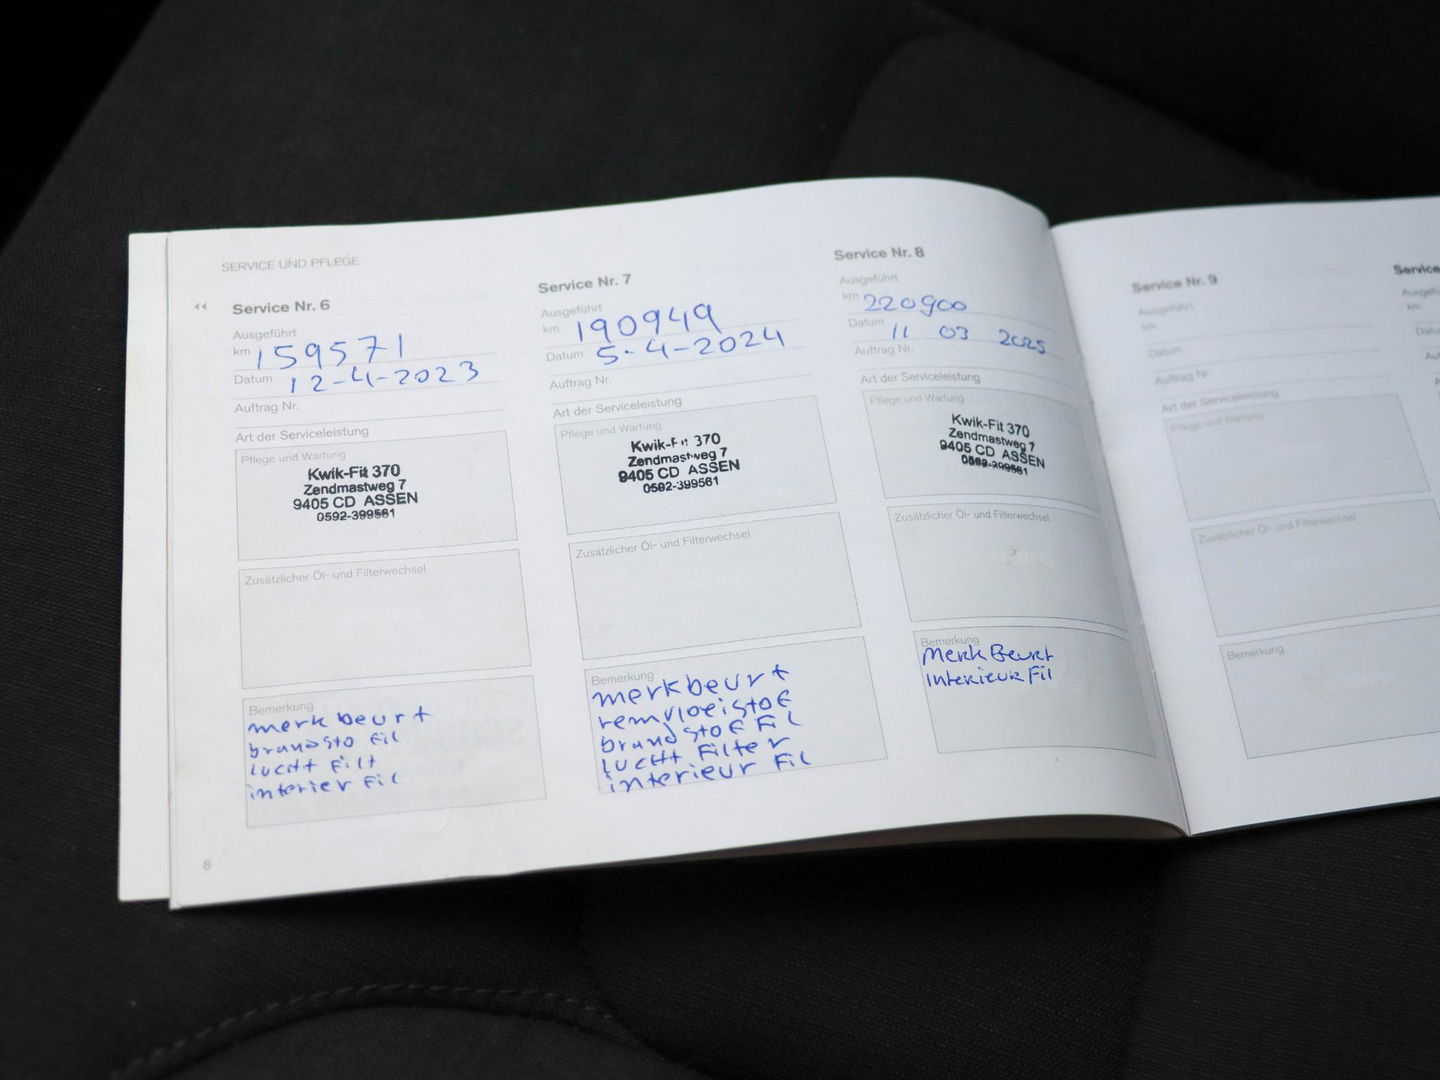 SERVICE UND PFLEGE
Service Nr. 6
Ausgeführt
km 159571
Datum 12-4-2023
Auftrag Nr.
Art der Serviceleistung
Pflege und Wartung
Kwik-Fit 370
Zendmastweg 7
9405 CD ASSEN
0592-399561
Zusätzlicher Öl- und Filterwechsel
STEMPEL
Bemerkung
merk beurt
brandsto fil
lucht filt
interier fil
8
Service Nr. 7
Ausgeführt
km 190949
Datum 5-4-2024
Auftrag Nr.
Art der Serviceleistung
Pflege und Wartung
Kwik-Fit 370
Zendmastweg 7
9405 CD ASSEN
0592-399561
Zusätzlicher Öl- und Filterwechsel
STEMPEL
Bemerkung
merkbeurt
remvloeistof
brandstof fil
lucht filter
interieur fil
Service Nr. 8
Ausgeführt
km 220900
Datum 11 03 2025
Auftrag Nr.
Art der Serviceleistung
Pflege und Wartung
Kwik-Fit 370
Zendmastweg 7
9405 CD ASSEN
0592-399561
Zusätzlicher Öl- und Filterwechsel
STEMPEL
Bemerkung
Merk Beurt
Interieur Fil
Service Nr. 9
Ausgeführt
km
Datum
Auftrag Nr.
Art der Serviceleistung
Pflege und Wartung
Zusätzlicher Öl- und Filterwechsel
STEMPEL
Bemerkung
Service
km